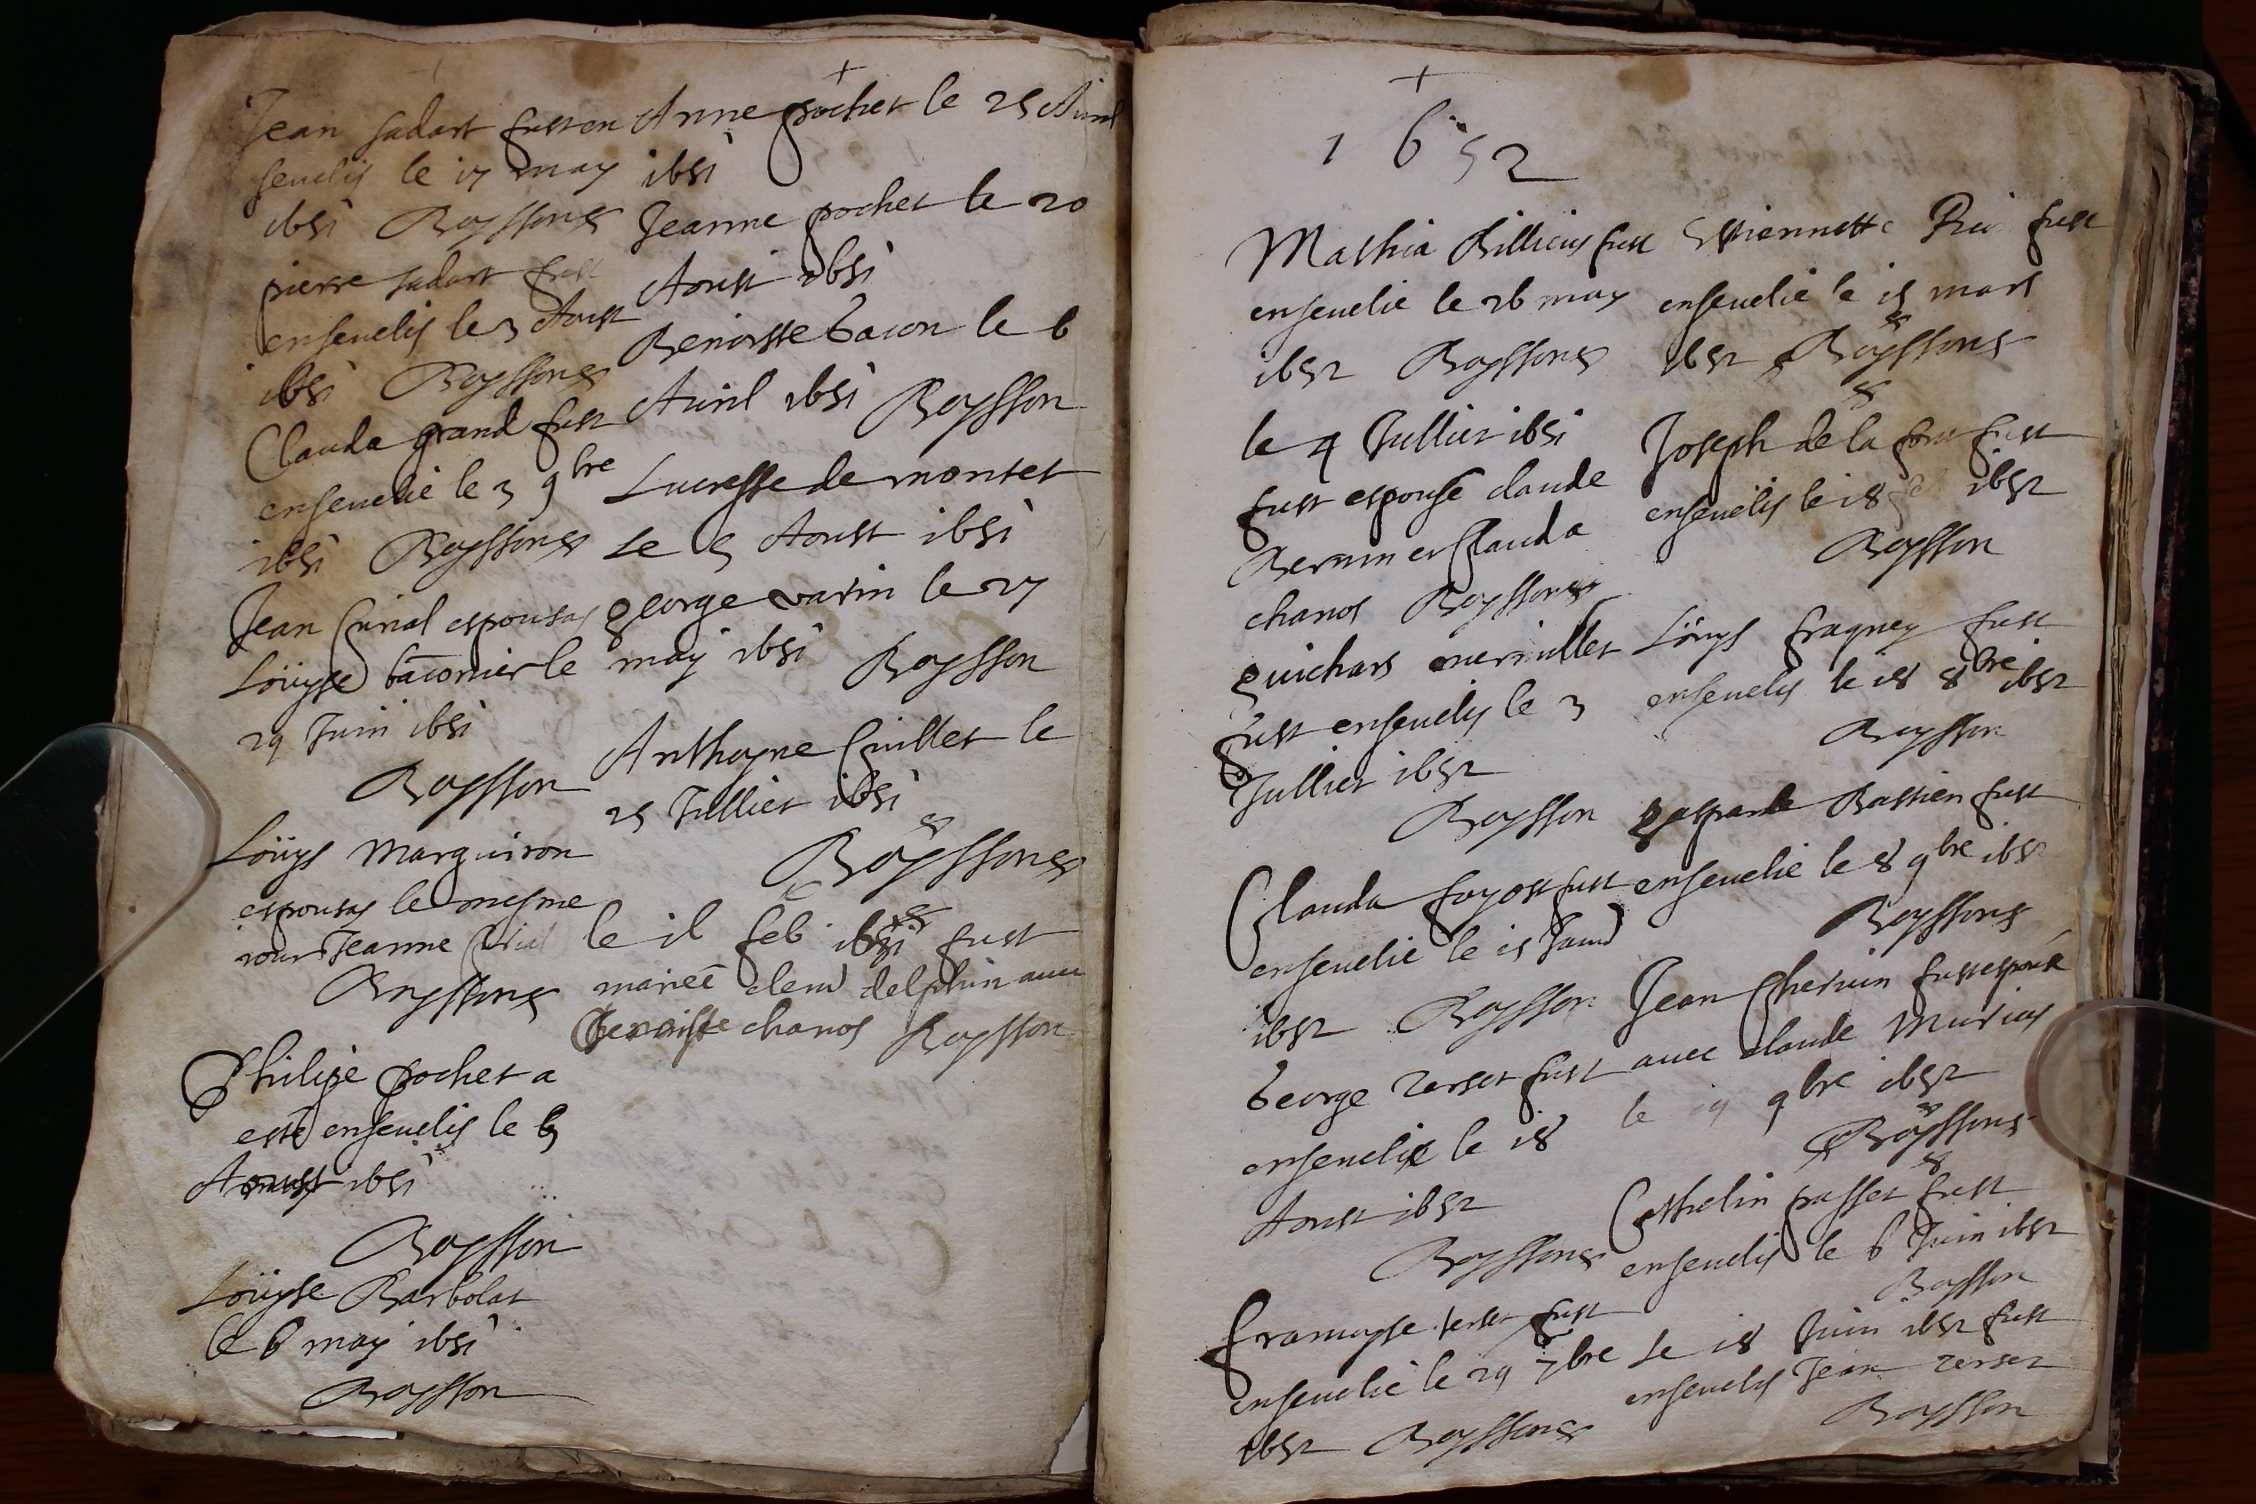 Jean sadart fust en
seuelis le 17 may
1651 Boyssones
pierre sadart fust
enseuelis le 3 Aoust
1651 Boyssones
Clauda grand fust
enseuelie le 3 9bre
1651 Boyssones
Jean Curial espousas
Loüyse baconier le
29 Juin 1651
Boysson
Loüys Marguiron
espousas le mesme
iour Jeanne
Boyssones
Philipe pochet a
esté enseuelis le
Aoust 1651
Boysson
Loüyse Barbolat
le 6 may 1651
Boysson
+
Anne pochet le 25 Auril
1651
Jeanne pochet le 20
Aoust 1651
Benoiste bacon le 6
Auril 1651 Boysson
Lucresse de montet
Le 5 Aoust 1651
george varin le 27
may 1651 Boysson
Anthoyne Cuillet le
25 Julliet 1651
Boyssones
le 11 feb 1651 fust
mariée delphin auec
benoiste chanos Boysson
+
1652
Mathia fust
enseuelie le 26 may
1652 Boyssones
le 4 Julliet 1651
fust espousé claude
Bernin et Clauda
chanos Boyssones
guichars mermillet
fust enseuelis le 3
Julliet 1652
Boysson
Clauda fayost fust
enseuelie le 15
1652 Boysson
George terset fust
enseuelie le 18
Aoust 1652
Boyssones
francoyse terset fust
enseuelie le 29 7bre
1652 Boyssones
Estiennette fust
enseuelie le 15 mars
1652 Boyssones
Joseph de la fust
enseuelis le 18 1652
Boysson
Loüys fraguey fust
enseuelis le 18 8bre 1652
Boysson
gasparde Bastien fust
enseuelie le 8 9bre 1652
Boyssones
Jean Cheruin fust espousé
auec claude
le 9bre 1652
Boyssones
Cathelin passet fust
enseuelis le 6 Juin 1652
Boysson
Le 18 Juin 1652 fust
enseuelis Jean terset
Boysson